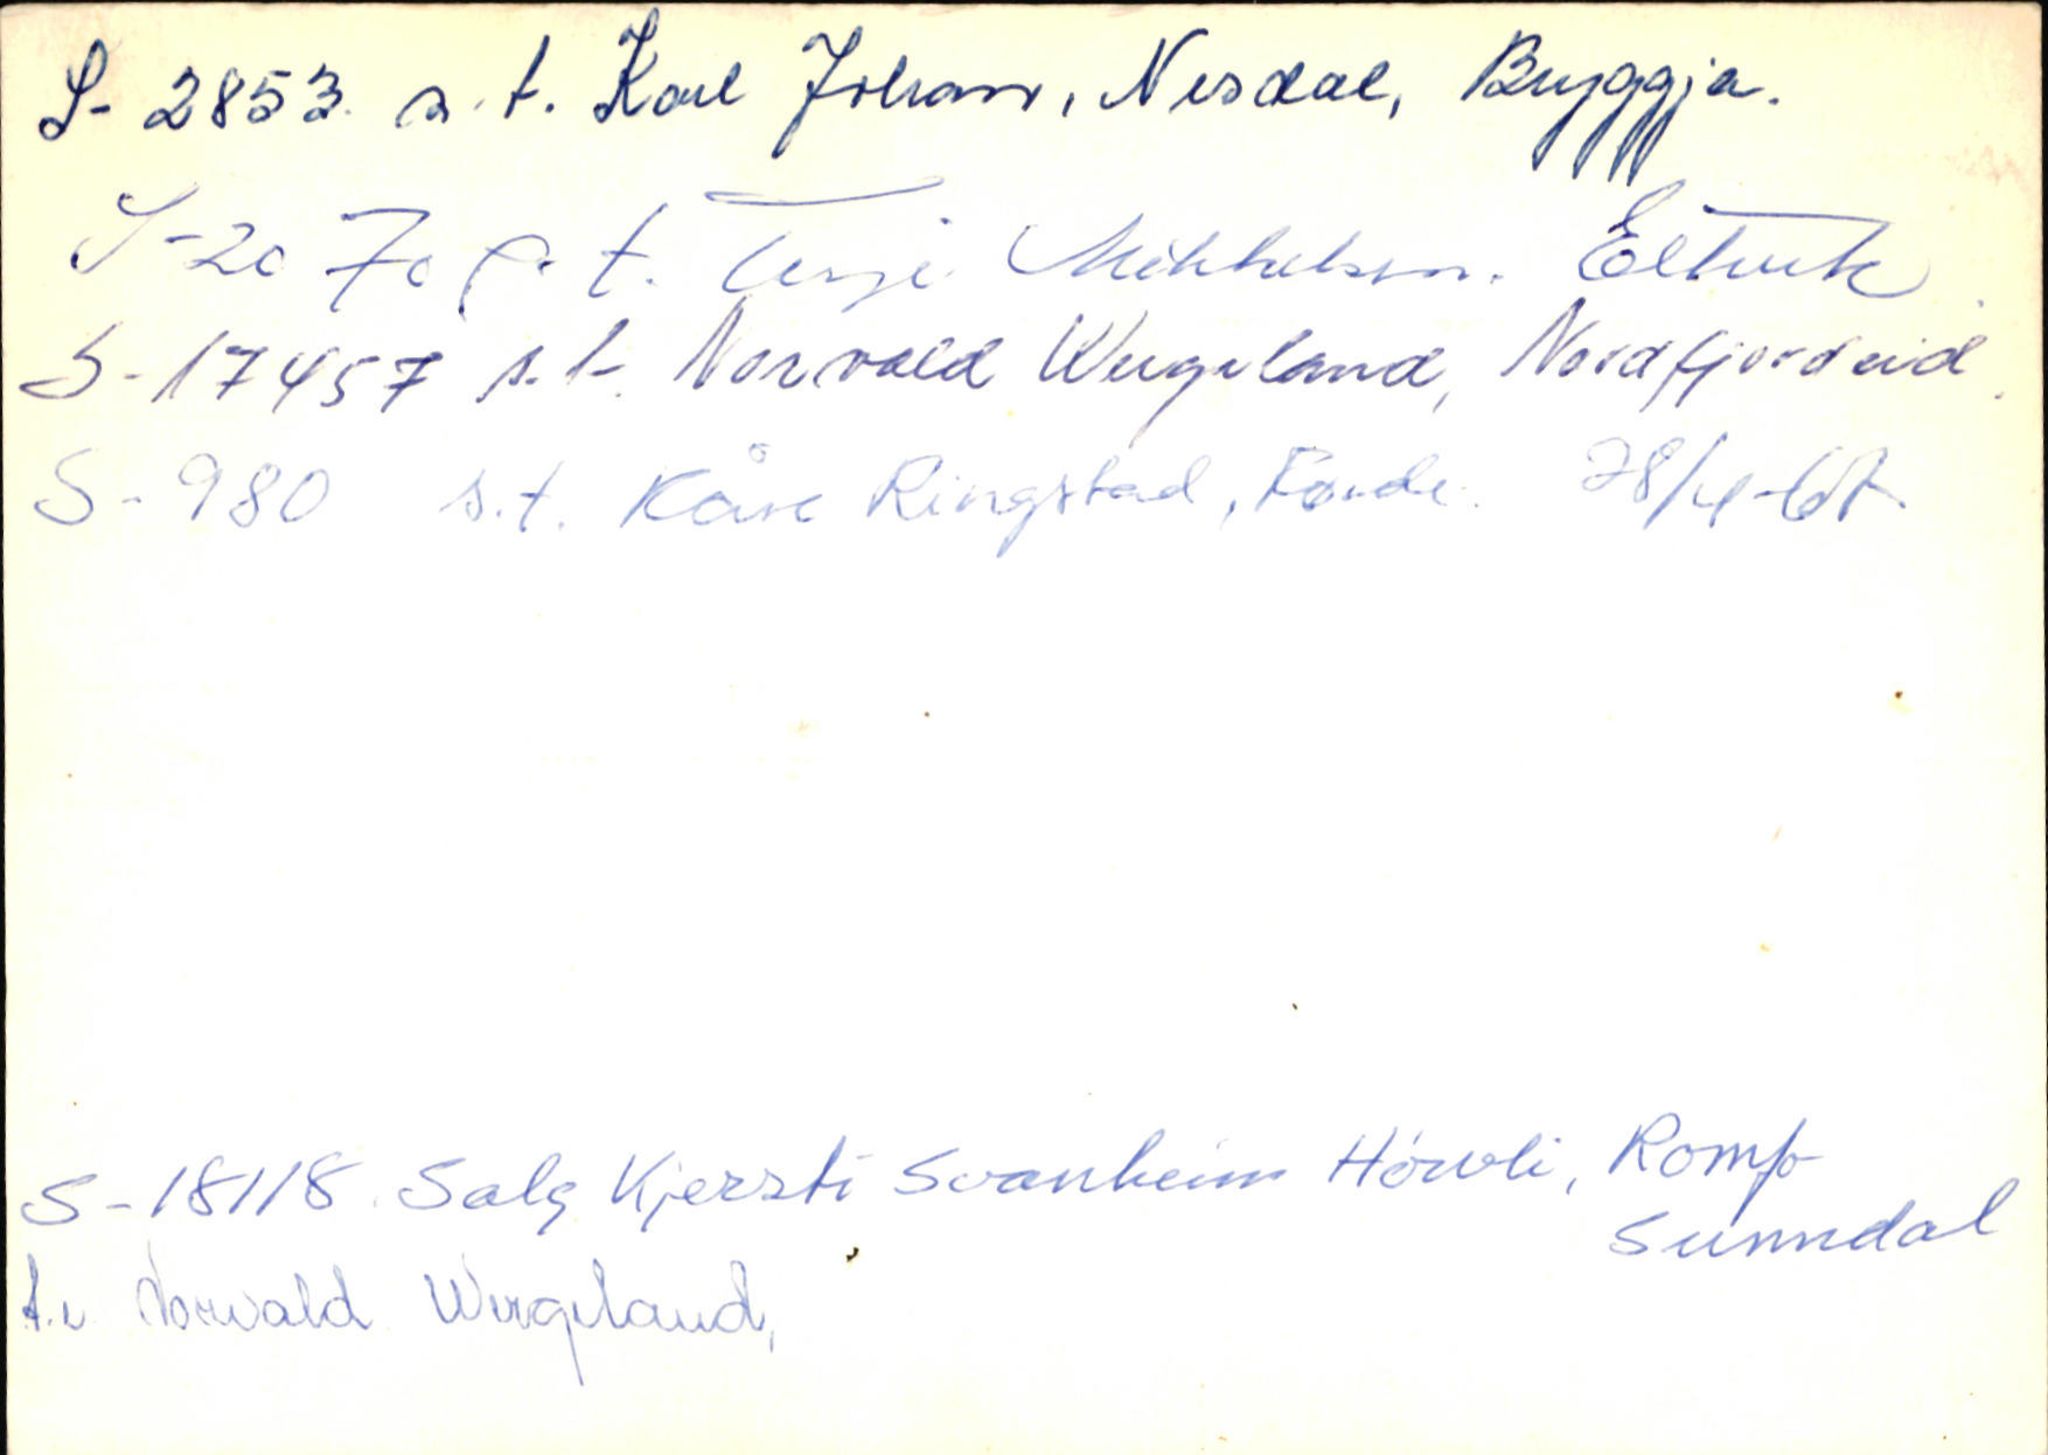 S- 2853. s. t. Karl Johan, Nesdal, Bryggja.
S-2070 s. t. Terje Mikkelsen. Eltvik.
S-17457 s.t. Norvald Wergeland, Nordfjordeid.
S-980 s.t. Kåre Ringstad, Førde. 28/4-67.
S-18118. Salg Kjersti Svanheim Hövli, Romfo
Sunndal
t.v Norvald Wergeland,